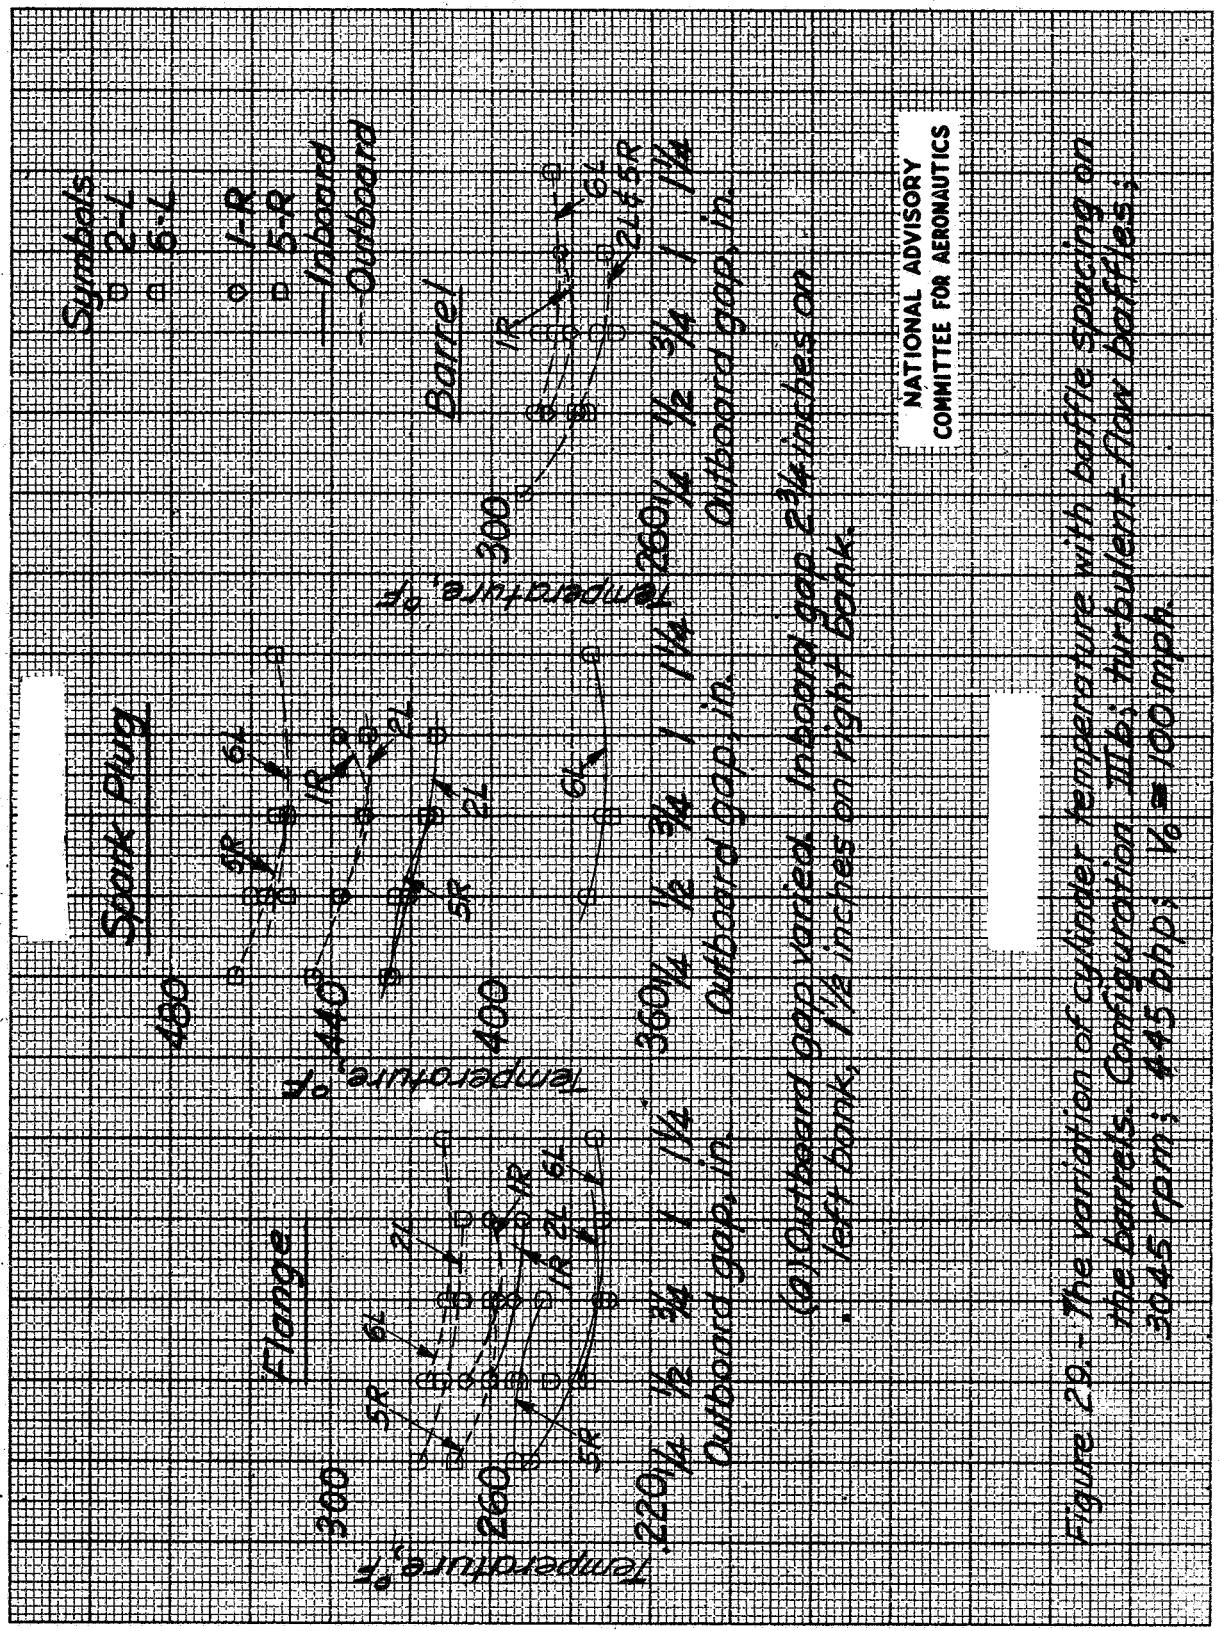 Symbols
2-L
6-L
1-R
5-R
Inboard
Outboard
Flange
300
260
220
Temperature, °F
5R
6L
2L
1R
1R
2L
6L
5R
1/4 1/2 3/4 1 1 1/4
Outboard gap, in.
Spark Plug
480
440
400
360
Temperature, °F
5R
6L
1R
2L
2L
5R
6L
1/4 1/2 3/4 1 1 1/4
Outboard gap, in.
Barrel
300
260
Temperature, °F
1R
6L
2L&5R
1/4 1/2 3/4 1 1 1/4
Outboard gap, in.
(a) Outboard gap varied. Inboard gap 2 3/4 inches on
left bank, 1 1/2 inches on right bank.
NATIONAL ADVISORY
COMMITTEE FOR AERONAUTICS
Figure 29.- The variation of cylinder temperature with baffle spacing on
the barrels. Configuration IIIb; turbulent-flow baffles;
3045 rpm; 445 bhp; V₀ ≅ 100 mph.